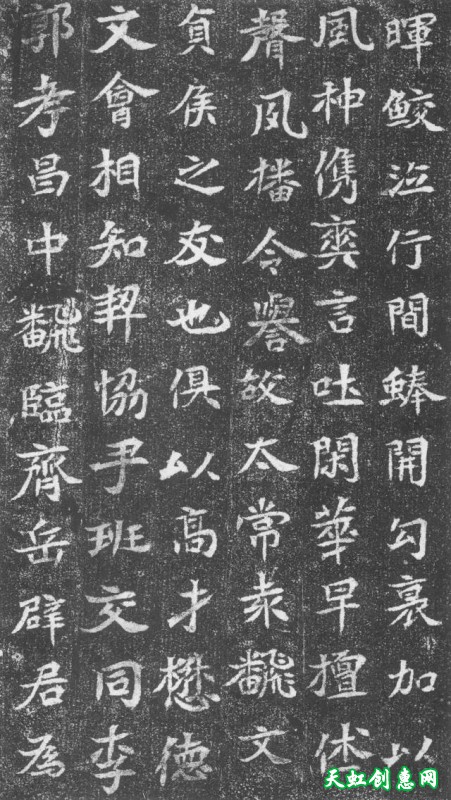 暉鮫泣行間開勾裏加以
風神儁爽言吐閑華早擅
聲夙播令譽故太常袁翻文
貞侯之友也俱以高才懋德
文會相知契協手班交同李
郭孝昌中翻臨齊岳辟君為
天虹创惠网